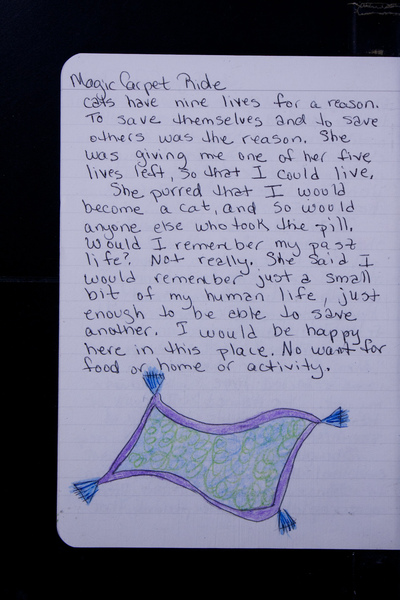 Magic Carpet Ride
cats have nine lives for a reason.
To save themselves and to save
others was the reason. She
was giving me one of her five
lives left, so that I could live.
She purred that I would
become a cat, and so would
anyone else who took the pill.
Would I remember my past
life? Not really. She said I
would remember just a small
bit of my human life, just
enough to be able to save
another. I would be happy
here in this place. No want for
food or home or activity.